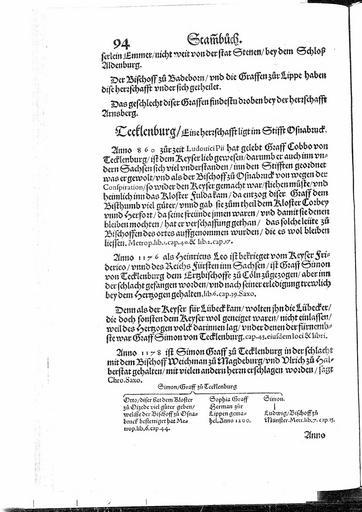 94 Stam̃būch.
serlein Emmer/nicht weit von der stat Stenen/bey dem Schloß
Aldenburg.
Der Bischoff zu Badeborn/vnd die Graffen zůr Lippe haben
dise herrschafft vnder sich getheilet.
Das geschlecht diser Graffen findestu droben bey der herrschafft
Arnsberg.
Tecklenburg/Eine herrschafft ligt im Stifft Osnabruck.
Anno 860 zůr zeit Ludouici Pij hat gelebt Graff Cobbo von
Tecklenburg/ist dem Keyser lieb gewesen/darumb er auch inn vn-
dern Sachsen sich viel vnderstanden/inn den Stifften geordnet
was er gewolt/vnd als der Bischoff zu Osnabruck von wegen der
Conspiration/so wider den Keyser gemacht war/fliehen můste/vnd
heimlich inn das Kloster Fulda kam/da entzog diser Graff dem
Bisthumb viel güter/vnnd gab sie zum theil dem Kloster Corbey
vnnd Herfort/da seine freunde jnnen waren/vnd damit sie denen
bleiben mochten/hat er verschaffung gethan/das solche leute zu
Bischoffen des ortes auffgenommen wurden/die es wol bleiben
liessen. Metrop.lib.1.cap.40.& lib.2.cap.17.
Anno 1176 als Heinricus Leo ist bekrieget von Keyser Fri-
derico/vnnd des Reichs Fürsten im Sachsen/ist Graff Simon
von Tecklenburg dem Ertzbischoffe zu Cöln zůgezogen/aber inn
der schlacht gefangen worden/vnd nach seiner erledigung trewlich
bey dem Hertzogen gehalten.lib.6.cap.19.Saxo,
Denn als der Keyser für Lübeck kam/wolten jhn die Lübecker/
die doch sonsten dem Keyser wol geneiget waren/nicht einlassen/
weil des Hertzogen volck darinnen lag/vnder denen der fürnemb-
ste war Graff Simon von Tecklenburg. cap.45.eiusdem loci & libri.
Anno 1178 ist Simon Graff zu Tecklenburg in der schlacht
mit dem Bischoff Weichman zu Magdeburg/vnd Vlrich zu Hal-
berstat gehalten/mit vielen andern herrn erschlagen worden/sagt
Chro.Saxo.
Simon/Graff zu Tecklenburg
Otto/diser hat dem Kloster
zu Ossede viel güter geben/
welchs der Bischoff zu Osna-
bruck bestetiget hat Me-
trop.lib.6.cap.44.
Sophia Graff
Herman zůr
Lippen gema-
hel.Anno 1200.
Simon.
Ludwig/Bischoff zu
Münster.Metr.lib.7. cap.15.
Anno